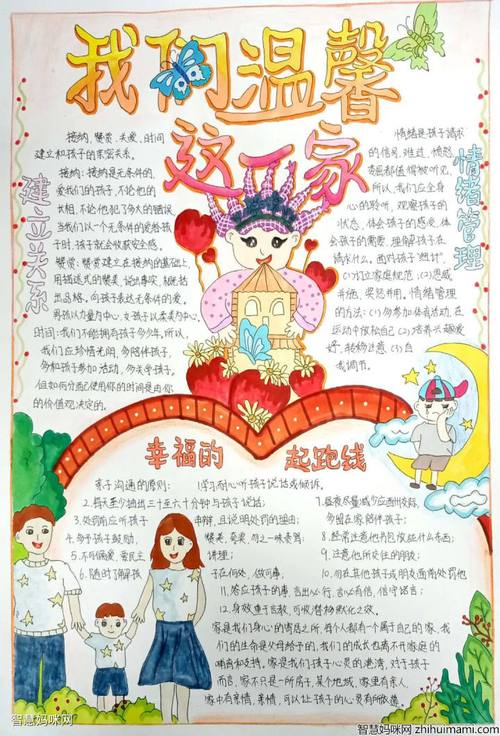 我们温馨
这一家
建立关系
接纳、赞赏、关爱、时间
建立和孩子的亲密关系。
接纳：接纳是无条件的
爱我们的孩子，不论他的
长相，不论他犯了多大的错误
当我们以一个无条件的爱给孩
子时，孩子就会收获安全感。
赞赏：赞赏建立在接纳的基础上，
用错送式的赞美，说出事实，概括
出品格，向孩子表达无条件的爱，
男孩以力量为中心，女孩子以柔美为中心
时间：我们不能拥有孩子多少年。所以，
我们应珍惜光阴，多陪伴孩子，
多和孩子参加活动，勿关学孩子。
但如何分配使用你的时间是由你
的价值观决定的。
情绪管理
情绪是孩子请求
的信号，难过、愤怒
委屈都值得被听见。
所以，我们应全身
心的聆听，观察孩子的
状态，体会孩子的感受，体
会孩子的需要，理解孩子在
请求什么。而外孩子"想计"
(1)订立家庭规范、(2)恩威
并施，奖惩并用。情绪管理
的方法：(1)勿参加体育活动，在
运动中放松自己(2)培养兴趣爱
好，转移注意(3)自
我调节。
幸福的 起跑线
亲子沟通的原则：
1.学习耐心听孩子说话或倾诉。
2.每天至少抽出三十至六十分钟与孩子说话；
3.处罚前应听孩子申辩，且说明处罚的理由；
4.多予孩子鼓励、赞美，奖罚勿之一味责骂；
5.不可偏爱，要民主讲理；
6.随时了解孩子在何处，做何事；
7.昼夜尽量减少应酬交际，
多留在家陪伴孩子；
8.经常注意他书包放些什么东西；
9.注意他所交往的朋友；
10.勿在其他孩子或朋友面前处罚他
11.答应孩子的事，言出必行，言必有信，信守诺言；
12.身教重于言教，可收潜移默化之效。
家是我们身心的寄居之所，每个人都有一个属于自己的家，我
们的生命是父母给予的，我们的成长也离不开家庭的
哺育和支持。家是我们孩子心灵的港湾，对于孩子
而言，家不只是一所房子，某个地域，家里有亲人，
家中有亲情，亲情，可以让孩子的心灵有所依靠
智慧妈咪网
智慧妈咪网 zhihuimami.com